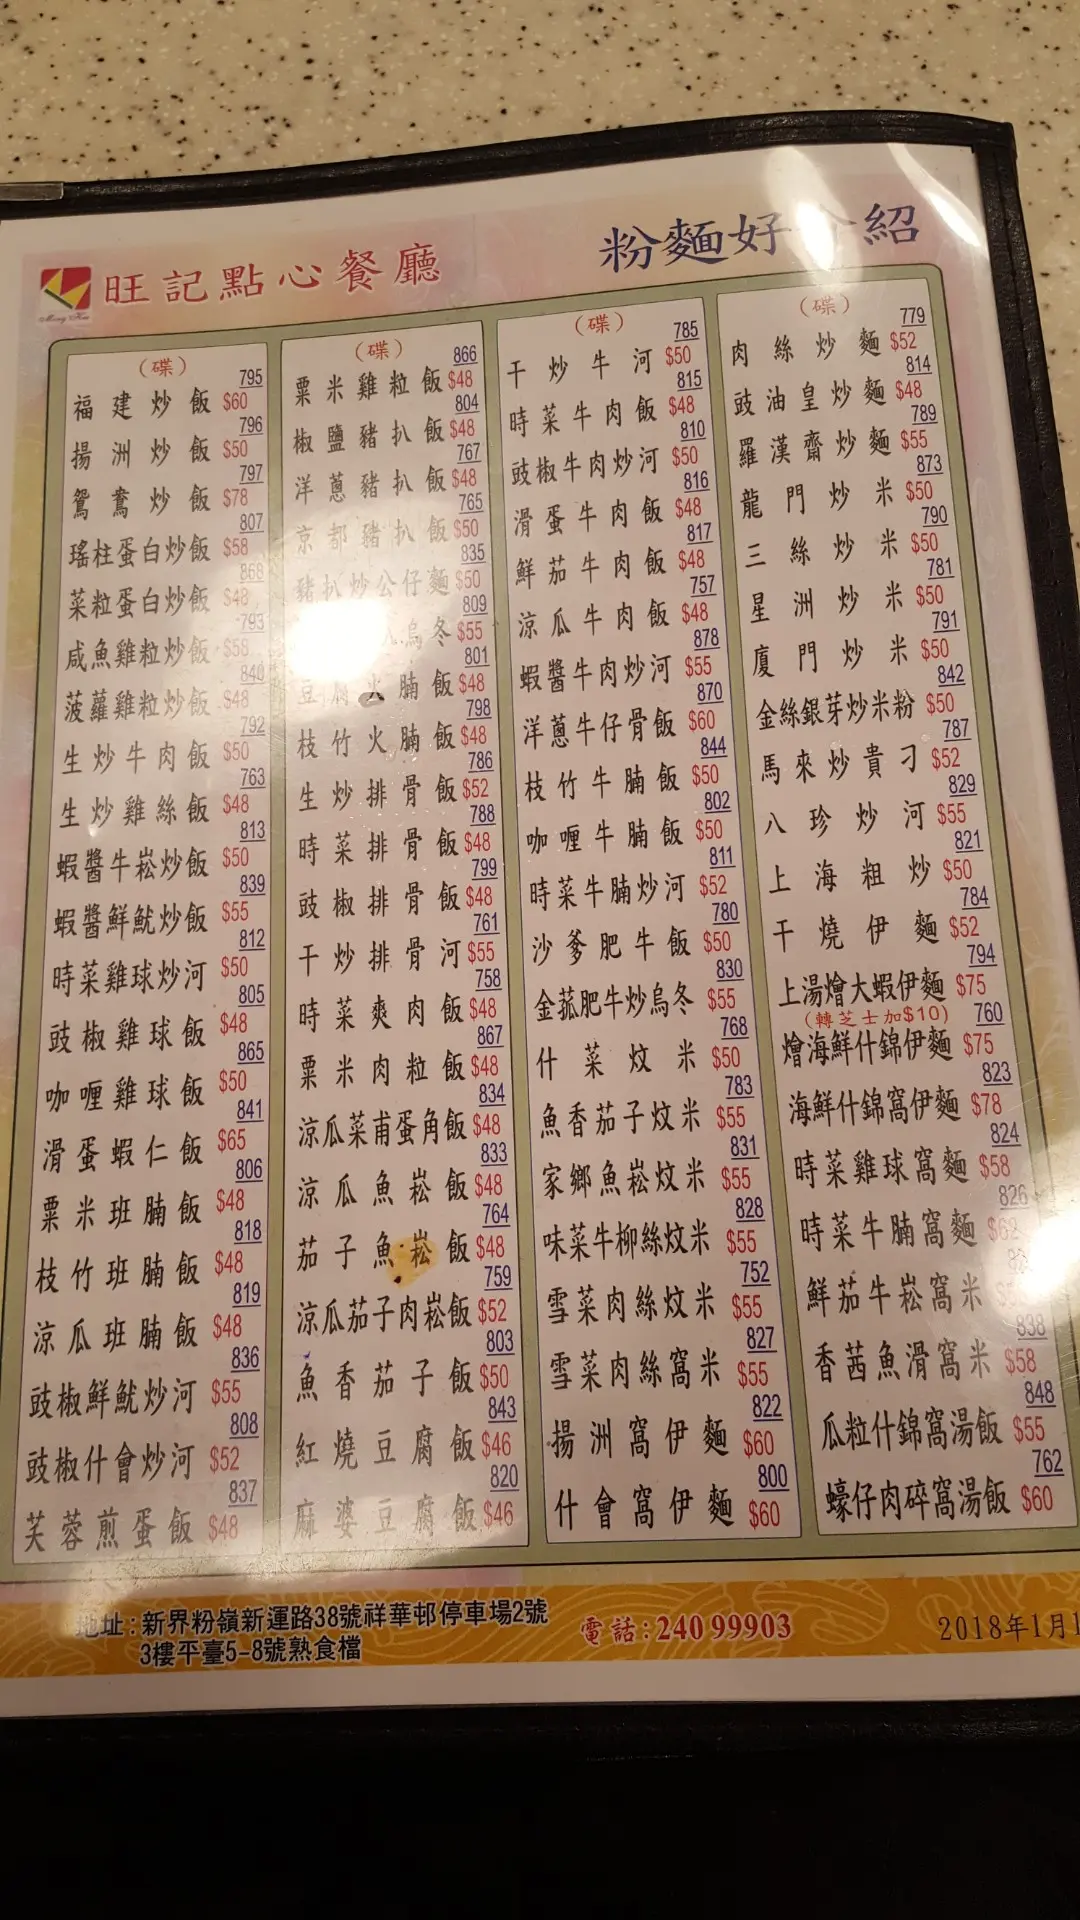 旺記點心餐廳
粉麵好介紹
（碟）
福建炒飯 $60 795
揚洲炒飯 $50 796
鴛鴦炒飯 $78 797
瑤柱蛋白炒飯 $58 807
菜粒蛋白炒飯 $48 868
咸魚雞粒炒飯 $58 793
菠蘿雞粒炒飯 $48 840
生炒牛肉飯 $50 792
生炒雞絲飯 $48 763
蝦醬牛崧炒飯 $50 813
蝦醬鮮魷炒飯 $55 839
時菜雞球炒河 $50 812
豉椒雞球飯 $48 805
咖喱雞球飯 $50 865
滑蛋蝦仁飯 $65 841
粟米班腩飯 $48 806
枝竹班腩飯 $48 818
涼瓜班腩飯 $48 819
豉椒鮮魷炒河 $55 836
豉椒什會炒河 $52 808
芙蓉煎蛋飯 $48 837
（碟）
粟米雞粒飯 $48 866
椒鹽豬扒飯 $48 804
洋蔥豬扒飯 $48 767
京都豬扒飯 $50 765
豬扒炒公仔麵 $50 835
烏冬 $55 809
豆腐火腩飯 $48 801
枝竹火腩飯 $48 798
生炒排骨飯 $52 786
時菜排骨飯 $48 788
豉椒排骨飯 $48 799
干炒排骨河 $55 761
時菜爽肉飯 $48 758
粟米肉粒飯 $48 867
涼瓜菜甫蛋角飯 $48 834
涼瓜魚崧飯 $48 833
茄子魚崧飯 $48 764
涼瓜茄子肉崧飯 $52 759
魚香茄子飯 $50 803
紅燒豆腐飯 $46 843
麻婆豆腐飯 $46 820
（碟）
干炒牛河 $50 785
時菜牛肉飯 $48 815
豉椒牛肉炒河 $50 810
滑蛋牛肉飯 $48 816
鮮茄牛肉飯 $48 817
涼瓜牛肉飯 $48 757
蝦醬牛肉炒河 $55 878
洋蔥牛仔骨飯 $60 870
枝竹牛腩飯 $50 844
咖喱牛腩飯 $50 802
時菜牛腩炒河 $52 811
沙爹肥牛飯 $50 780
金菰肥牛炒烏冬 $55 830
什菜炆米 $50 768
魚香茄子炆米 $55 783
家鄉魚崧炆米 $55 831
味菜牛柳絲炆米 $55 828
雪菜肉絲炆米 $55 752
雪菜肉絲窩米 $55 827
揚洲窩伊麵 $60 822
什會窩伊麵 $60 800
（碟）
肉絲炒麵 $52 779
豉油皇炒麵 $48 814
羅漢齋炒麵 $55 789
龍門炒米 $50 873
三絲炒米 $50 790
星洲炒米 $50 781
廈門炒米 $50 791
金絲銀芽炒米粉 $50 842
馬來炒貴刁 $52 787
八珍炒河 $55 829
上海粗炒 $50 821
干燒伊麵 $52 784
上湯燴大蝦伊麵 $75 794
（轉芝士加$10）
燴海鮮什錦伊麵 $75 760
海鮮什錦窩伊麵 $78 823
時菜雞球窩麵 $58 824
時菜牛腩窩麵 826
鮮茄牛崧窩米
香茜魚滑窩米 $58 838
瓜粒什錦窩湯飯 $55 848
蠔仔肉碎窩湯飯 $60 762
地址：新界粉嶺新運路38號祥華邨停車場2號
3樓平臺5-8號熟食檔
電話：240 99903
2018年1月1